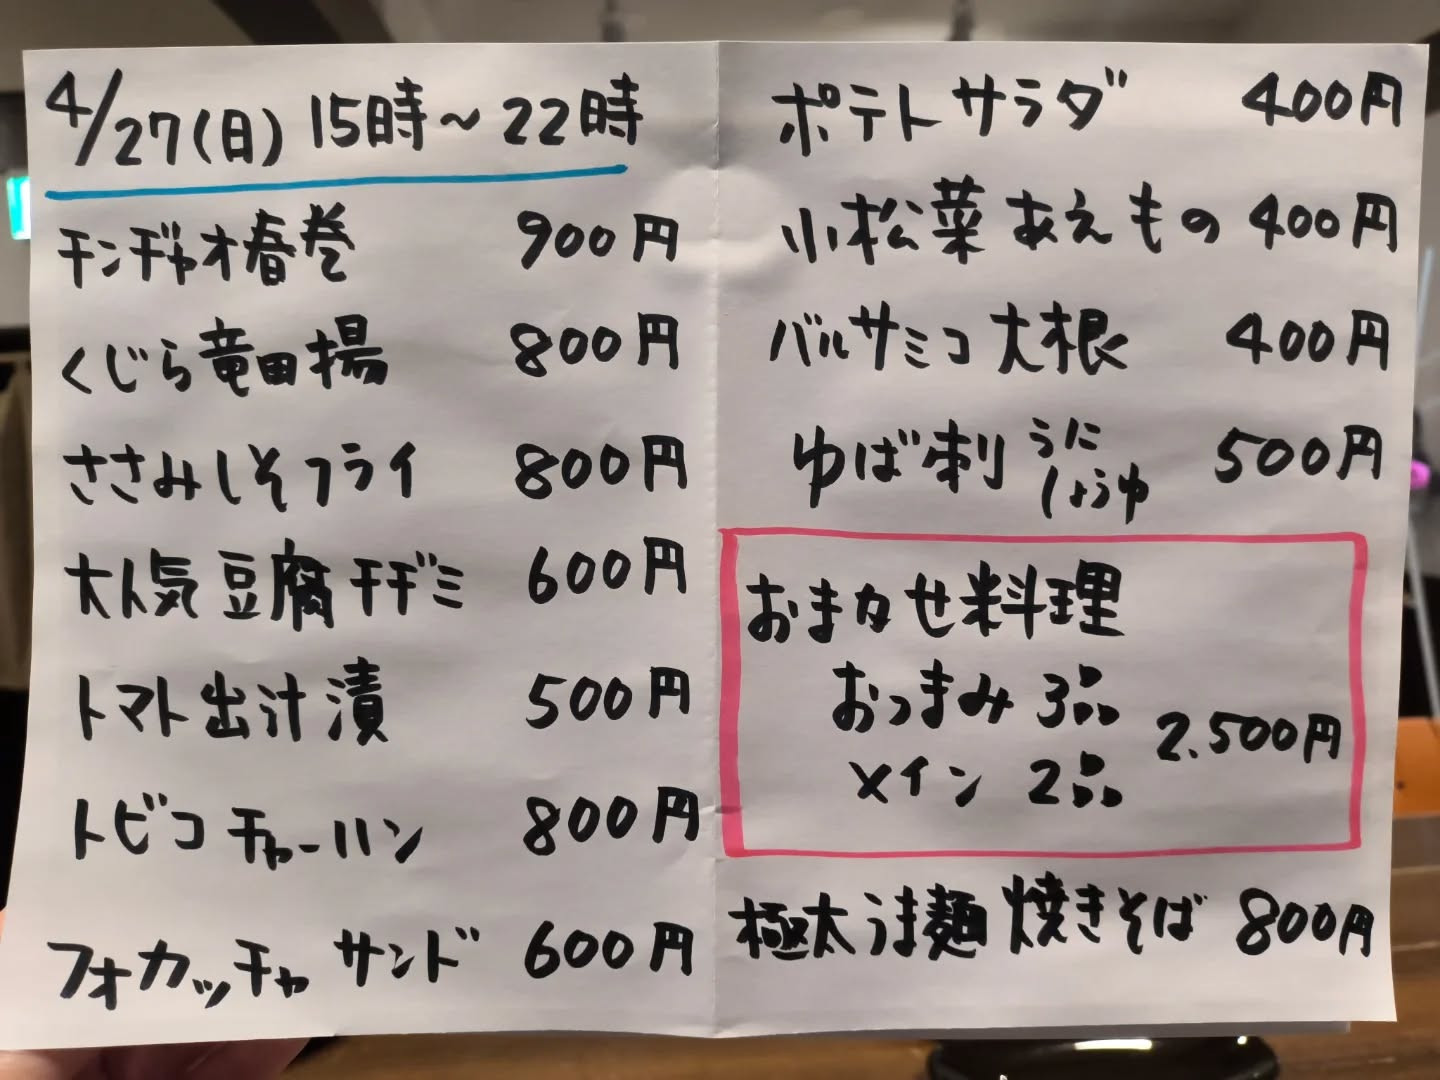 4/27(日) 15時～22時
チンヂャオ春巻 900円
くじら竜田揚 800円
ささみしそフライ 800円
大人気豆腐チヂミ 600円
トマト出汁漬 500円
トビコチャーハン 800円
フォカッチャサンド 600円
ポテトサラダ 400円
小松菜あえもの 400円
バルサミコ大根 400円
ゆば刺 うにしょうゆ 500円
おまかせ料理
おつまみ 3品
メイン 2品 2.500円
極太うま麺焼きそば 800円